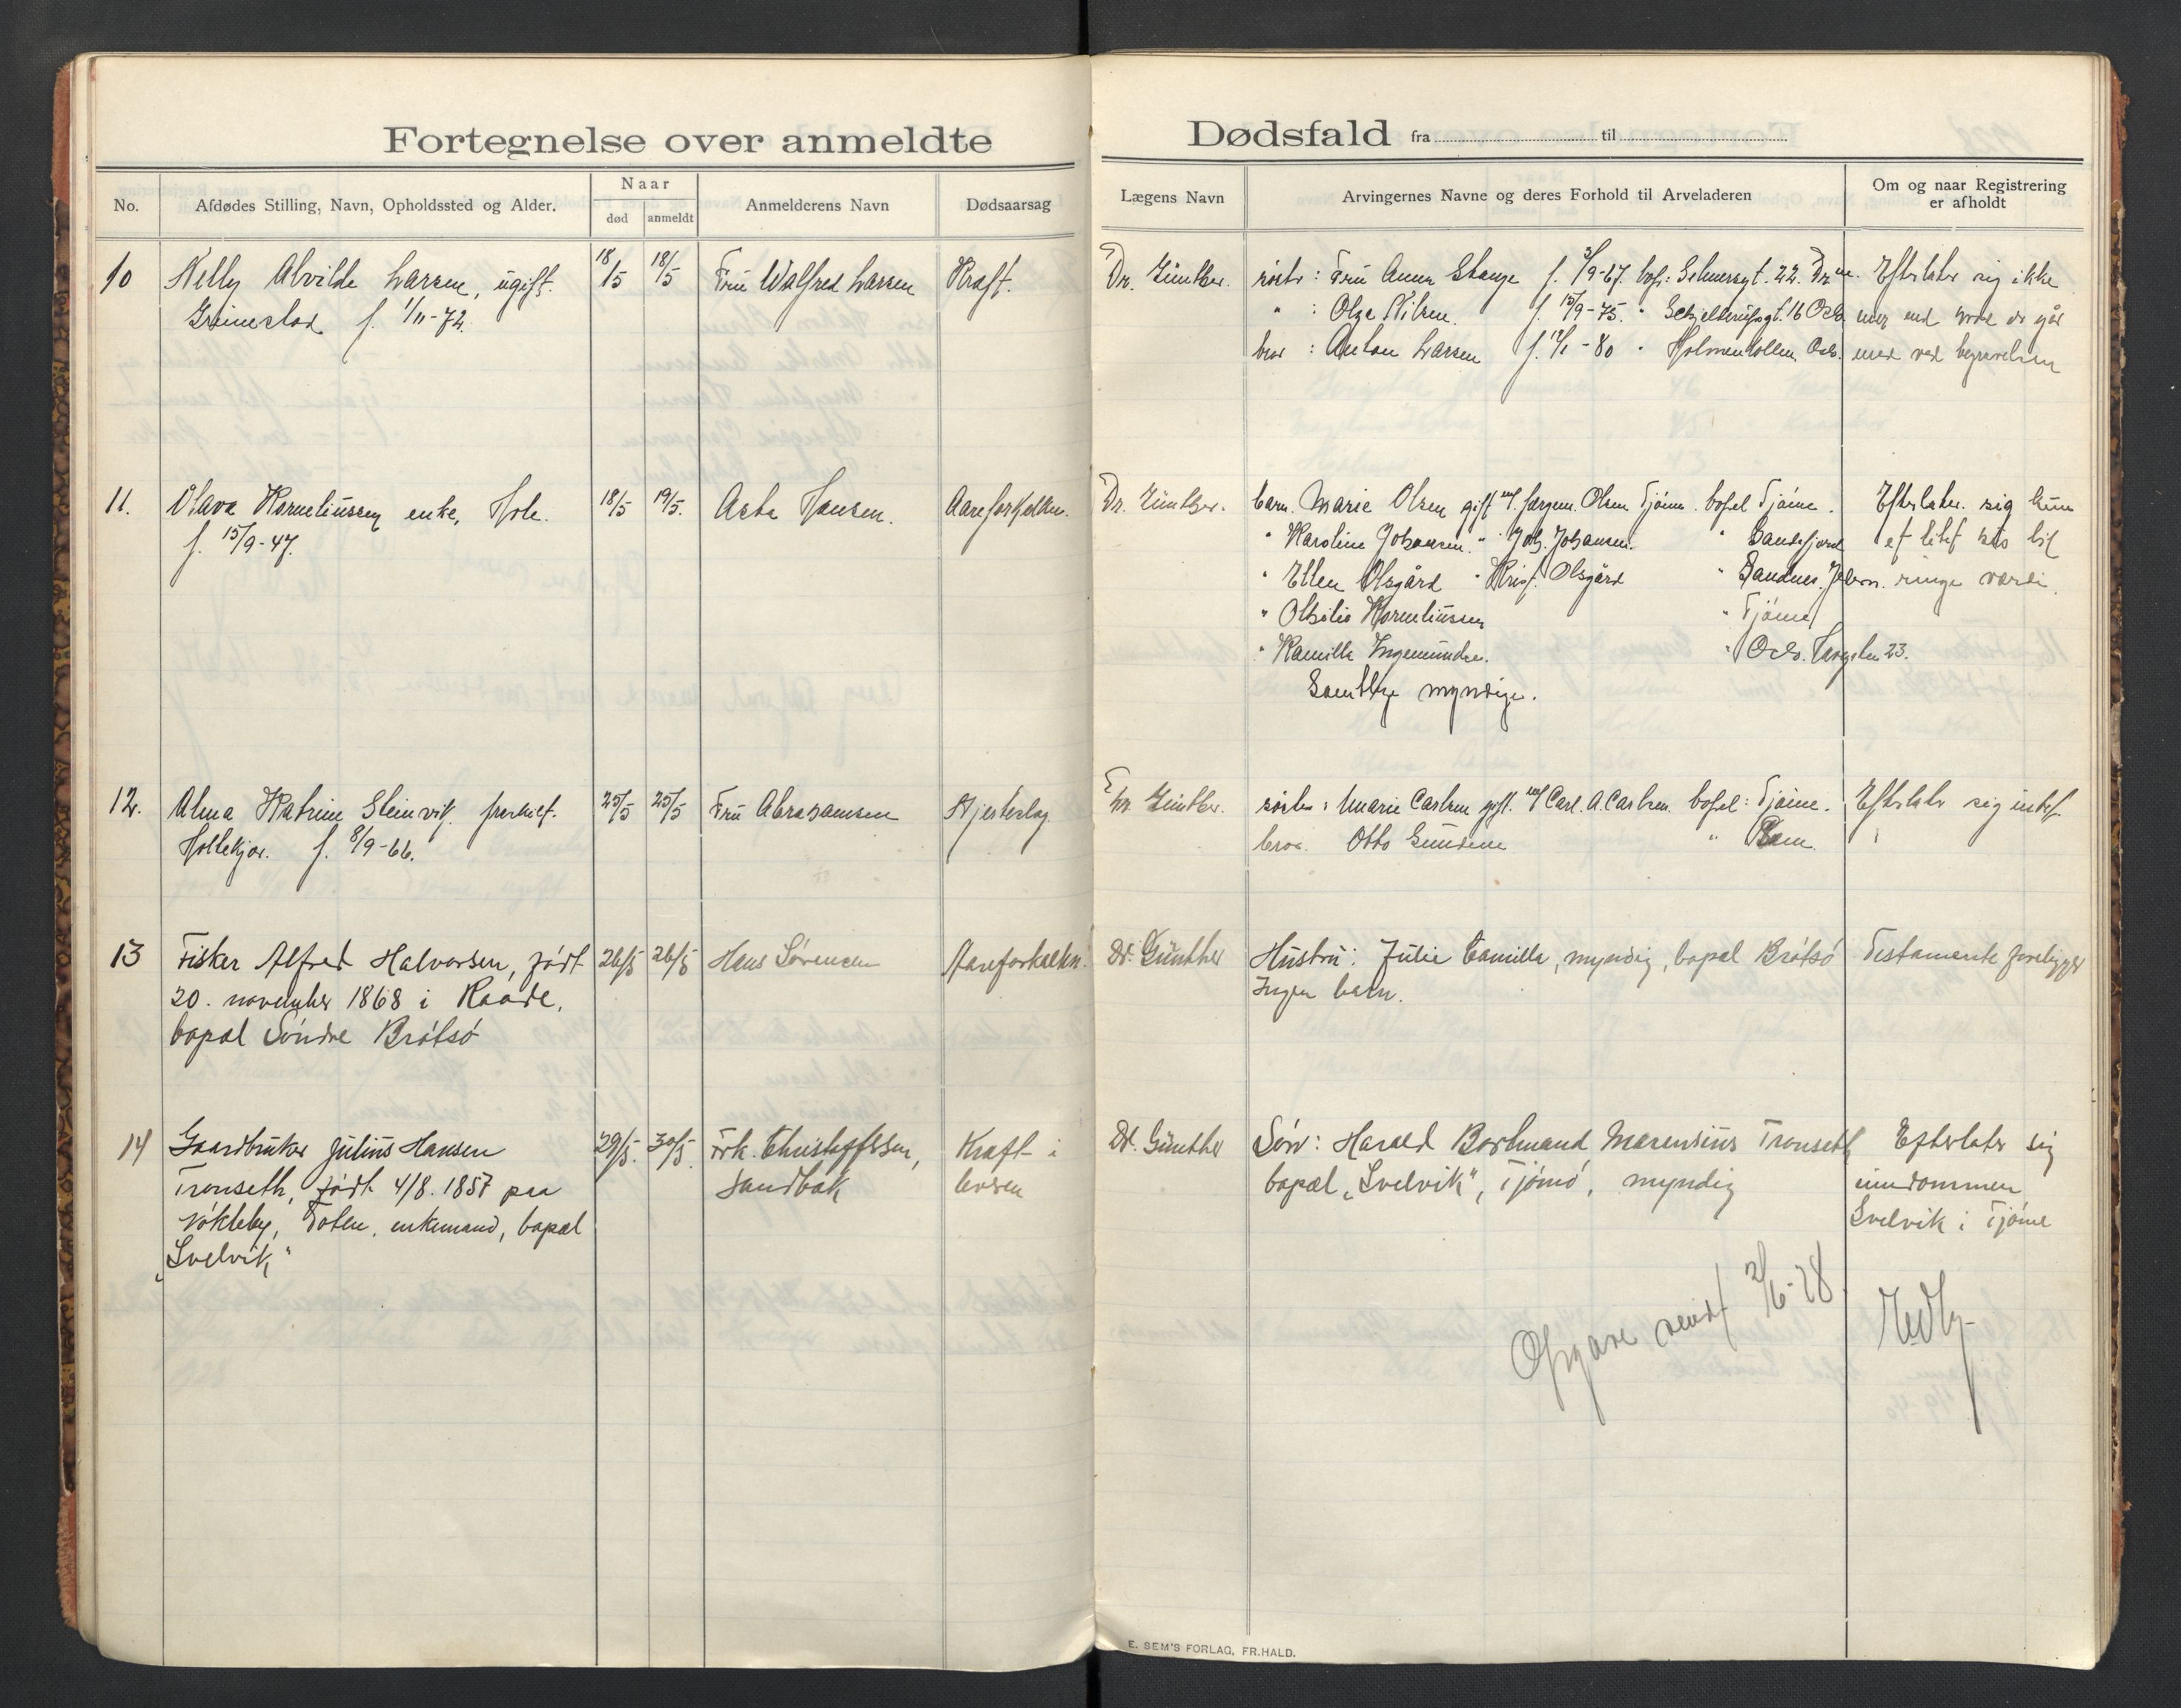 Fortegnelse over anmeldte Dødsfald fra til
No.
Afdødes Stilling, Navn, Opholdssted og Alder.
Naar
død
anmeldt
Anmelderens Navn
Dødsaarsag
Lægens Navn
Arvingernes Navne og deres Forhold til Arveladeren
Om og naar Registrering
er afholdt
10 Nelly Alvilde Larsen, ugift. 18/5 18/5 Fru Walfred Larsen Kræft.
Grimestad f. 1/11-72.
Dr. Günther. søster : Fru Anna Stange f. 3/9-67. bos: Selmersgt. 22. Drm. Efterlater sig ikke
" : Olga Nilsen. f. 15/9-75. " 16 Oslo mer end hvad der går
bror : Anton Larsen f. 12/1-80 " Holmenkollen, Oslo. med ved begravelsen
11. Olava Korneliussen enke, Hole. 18/5 19/5. Asta Hansen. Aareforkalkn.
f. 15/9-47.
Dr. Günther. barn. Marie Olsen gift m/ Jørgen Olsen Tjøme. bopel Tjøme. Efterlater sig kun
" Karoline Johansen. " Joh. Johansen. " Sandefjord et litet hus til
" Ellen Olsgård " Krist. Olsgård " Sandnes. Jæderen. ringe værdi.
" Othilie Korneliussen " Tjøme
" Kamilla Ingemundsen. " Oslo. 23.
Samtlige myndige.
12. Alma Katrine Steinvik. fraskilt. 25/5 25/5 Fru Abrahamsen Hjerteslag
Holtekjær. f. 8/9-66.
Dr. Günther. søster : Marie Carlsen gift. m/ Carl. A. Carlsen. bopel : Tjøme. Efterlater sig intet.
bror. Otto Gundersen " Sem.
13 Fisker Alfred Halvorsen, født 26/5 26/5 Hans Sørensen Aareforkalkn.
20. november 1868 i Raade,
bopæl Søndre Brøtsø
Dr. Günther Hustru: Julie Camilla, myndig, bopæl Brøtsø Testamente foreligger
Ingen barn.
14 Gaardbruker Julius Hansen 29/5. 30/5. Frk. Christoffersen, Kræft i
Tronseth, født 4/8. 1857 paa Sandbæk leveren
Vøkleby, Toten, enkemand, bopæl
"Svelvik"
Dr. Günther Søn: Harald Bortmand Marensius Tronseth Efterlater sig
bopæl "Svelvik", Tjømø, myndig eiendommen
Svelvik i Tjøme
Opgave sendt 2/6-28
E. SEM'S FORLAG, FR.HALD.